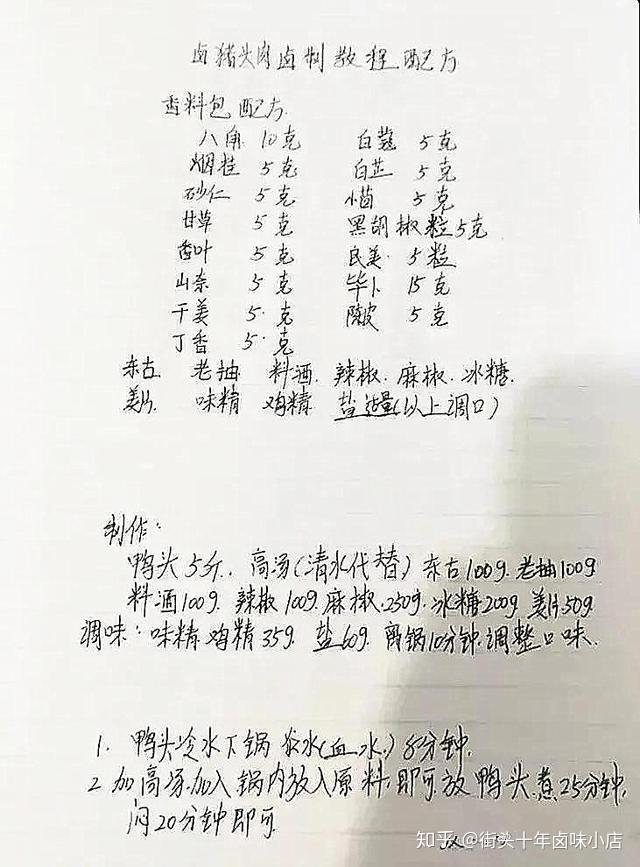 卤猪头肉卤制教程配方
香料包配方
八角 10克 白蔻 5克
烟桂 5克 白芷 5克
砂仁 5克 小茴 5克
甘草 5克 黑胡椒粒5克
香叶 5克 良姜 5粒
山奈 5克 毕卜 15克
干姜 5克 陈皮 5克
丁香 5克
东古 老抽 料酒 辣椒 麻椒 冰糖
姜片 味精 鸡精 盐适量(以上调口)
制作:
鸭头5斤. 高汤(清水代替) 东古100g 老抽100g
料酒100g 辣椒100g 麻椒250g 冰糖200g 姜片50g
调味: 味精 鸡精35g 盐60g 离锅10分钟调整口味
1. 鸭头冷水下锅 汆水(血水) 8分钟
2 加高汤加入锅内放入原料即可放鸭头煮25分钟
闷20分钟即可
知乎 @街头十年卤味小店